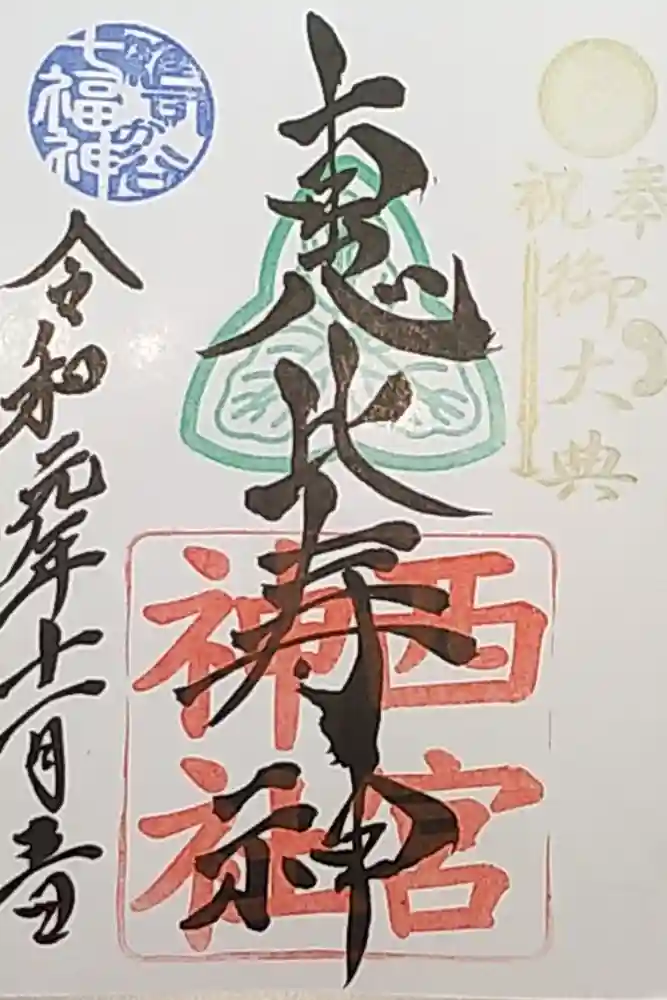 奉祝
御大典
恵比寿神
西宮
神社
雑司が谷
七福神
令和元年十一月吉日